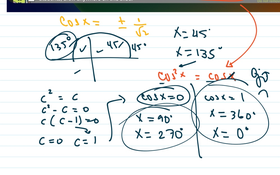 cosx = ± 1/√2
135° ✓ -45° 45°
x = 45°
x = 135°
cos²x = cosx
c² = c
c² - c = 0
c (c-1) = 0
c = 0 c = 1
cosx = 0
x = 90°
x = 270°
cosx = 1
x = 360°
x = 0°